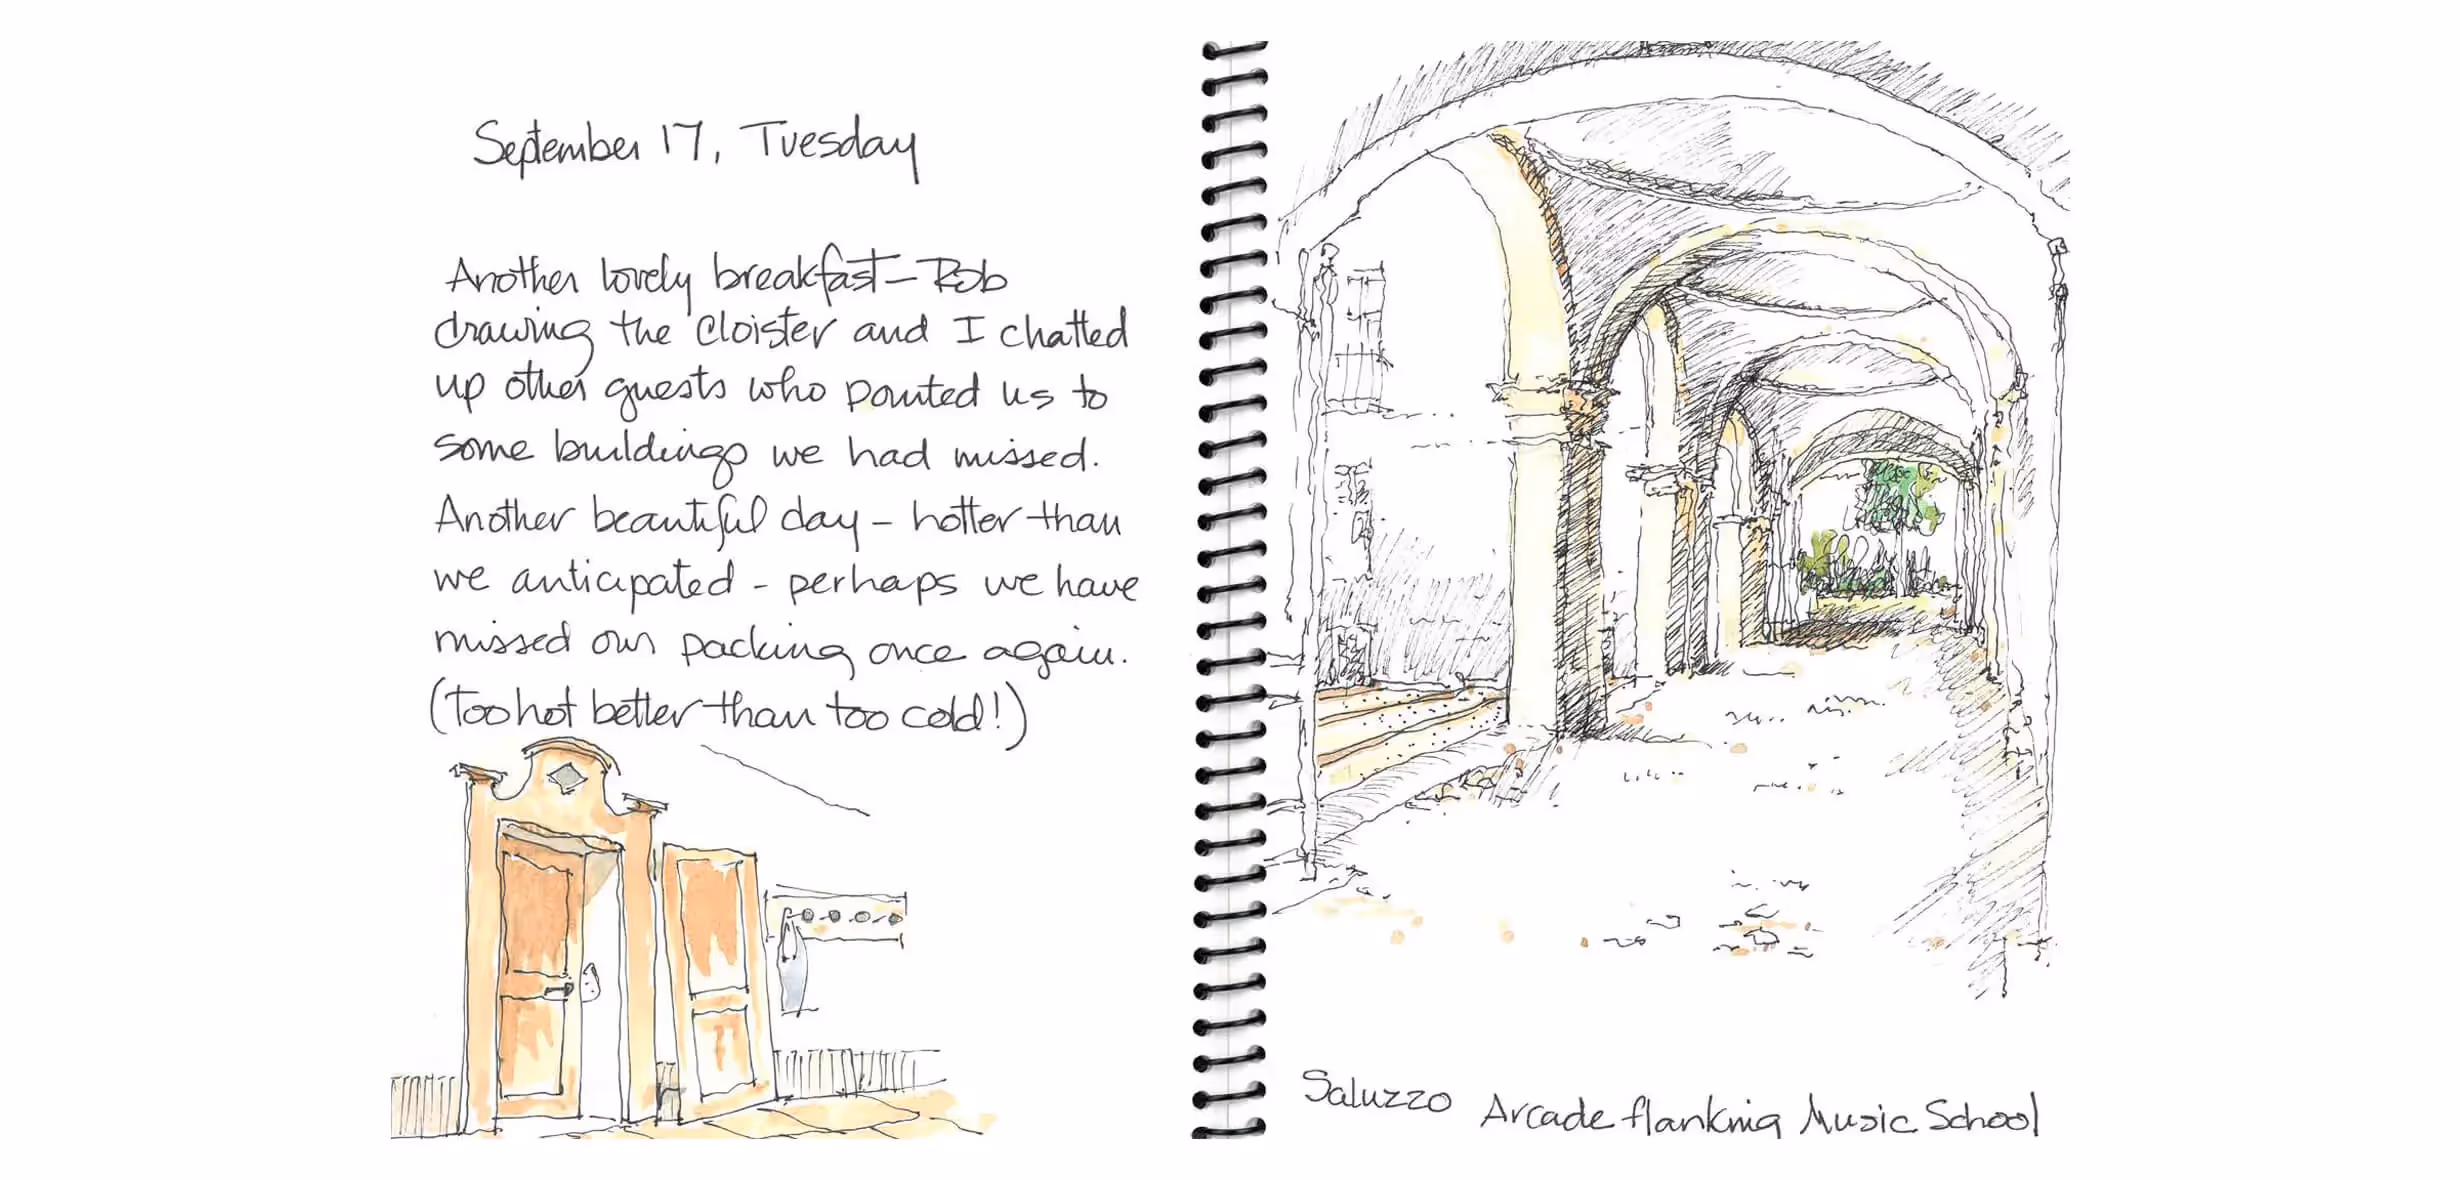 September 17, Tuesday
Another lovely breakfast – Rob
drawing the cloister and I chatted
up other guests who pointed us to
some buildings we had missed.
Another beautiful day – hotter than
we anticipated – perhaps we have
missed our packing once again.
(Too hot better than too cold!)
Saluzzo Arcade flanking Music School